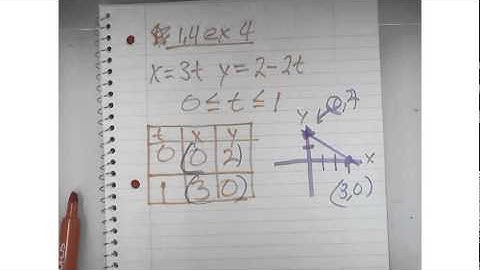 1,4 ex 4
x=3t y=2-2t
0≤t≤1
t x y
0 (0 2)
1 (3 0)
y (0,2)
x
(3,0)